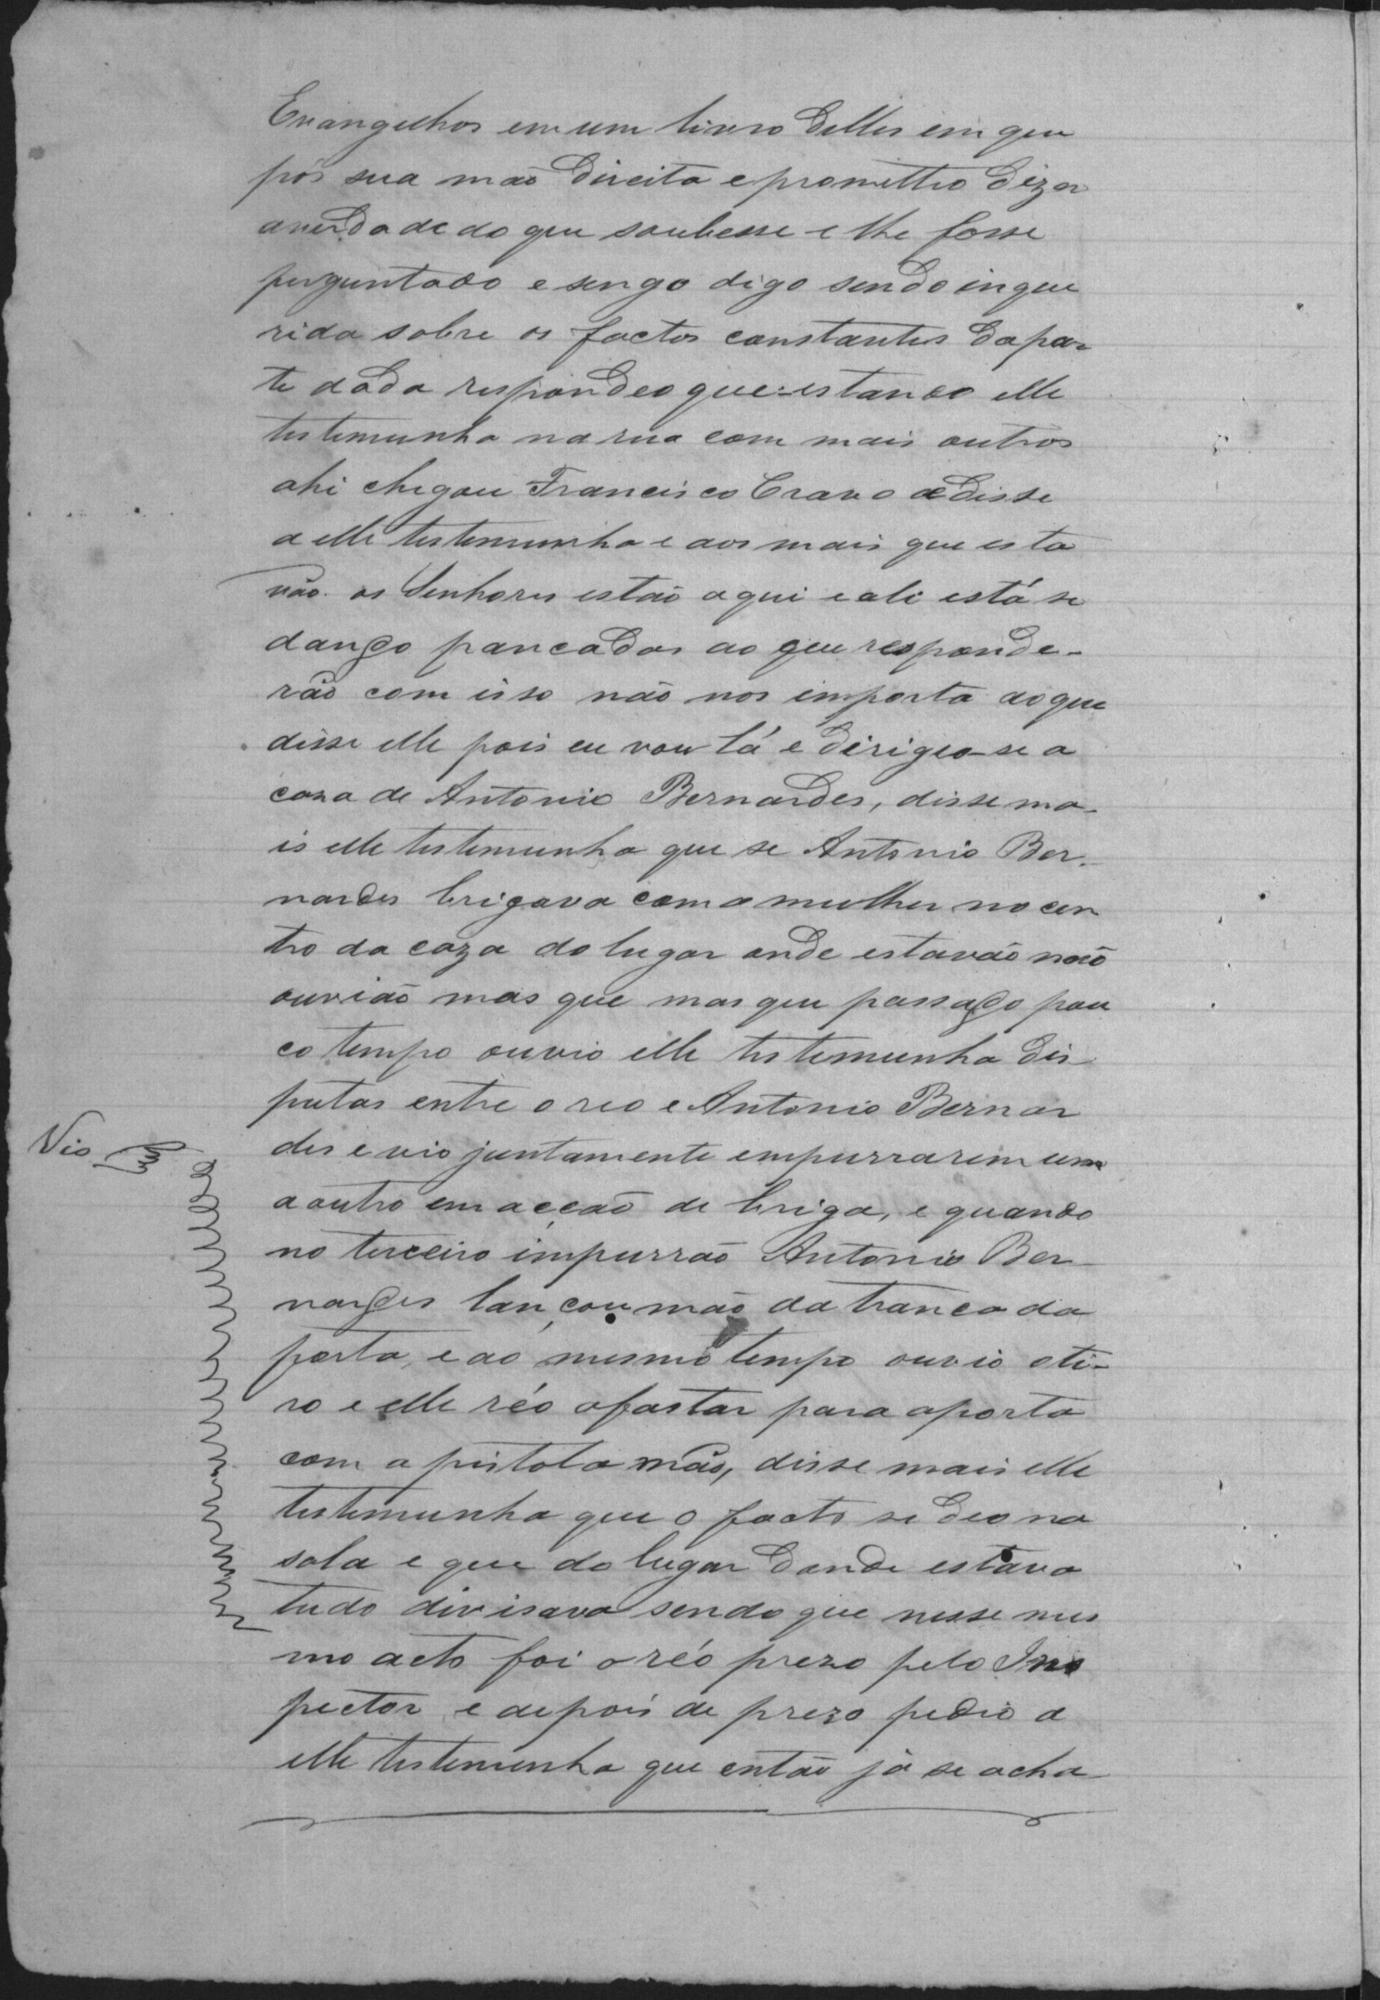 Evangelhos em um livro delles em que
pôs sua mão direita e prometteo dizer
a verdade do que soubesse e lhe fosse
perguntado e sengo digo sendo inque
rida sobre os factos constantes da par
te dada respondeo que: estando elle
testemunha na rua com mais outros
ahi chegou Francisco Cravo e disse
a elle testemunha e aos mais que esta
vão os Senhores estão aqui e ali está se
dando pancadas ao que responde-
rão com isso não nos importa ao que
disse elle pois eu vou lá e dirigeo-se a
caza de Antonio Bernardes, disse ma-
is elle testemunha que se Antonio Ber-
nardes brigava com a mulher no cen
tro da caza do lugar onde estavão não
ouvião mas que mas que passado pou
co tempo ouvio elle testemunha dis
putas entre o reo e Antonio Bernar
des e vio juntamente empurrarem um
a outro em acção de briga, e quando
no terceiro impurrão Antonio Ber-
nardes lançou mão da tranca da
porta, e ao mesmo tempo ouvio o ti-
ro e elle réo afastar para a porta
com a pistola mão, disse mais elle
testemunha que o facto se deo na
sala e que do lugar donde estava
tudo divisava sendo que nesse mes
mo acto foi o réo prezo pelo Ins
pector e depois de prezo pedio a
elle testemunha que então já se acha
Vio